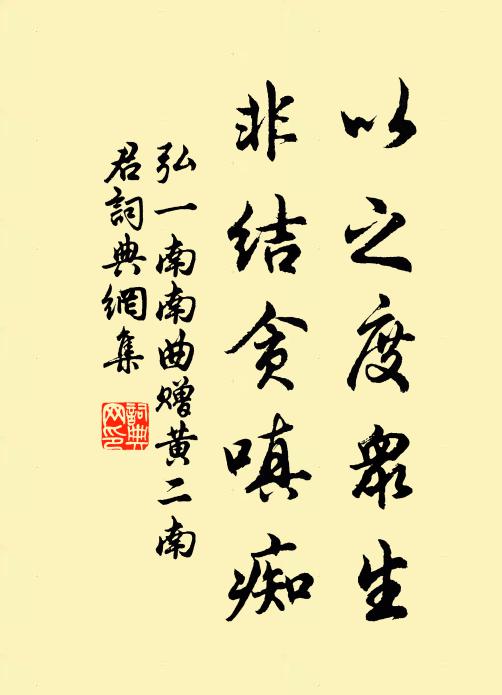 以之度眾生
非结贪嗔痴
弘一南南曲赠黄二南
君詞典網集
詞典網印